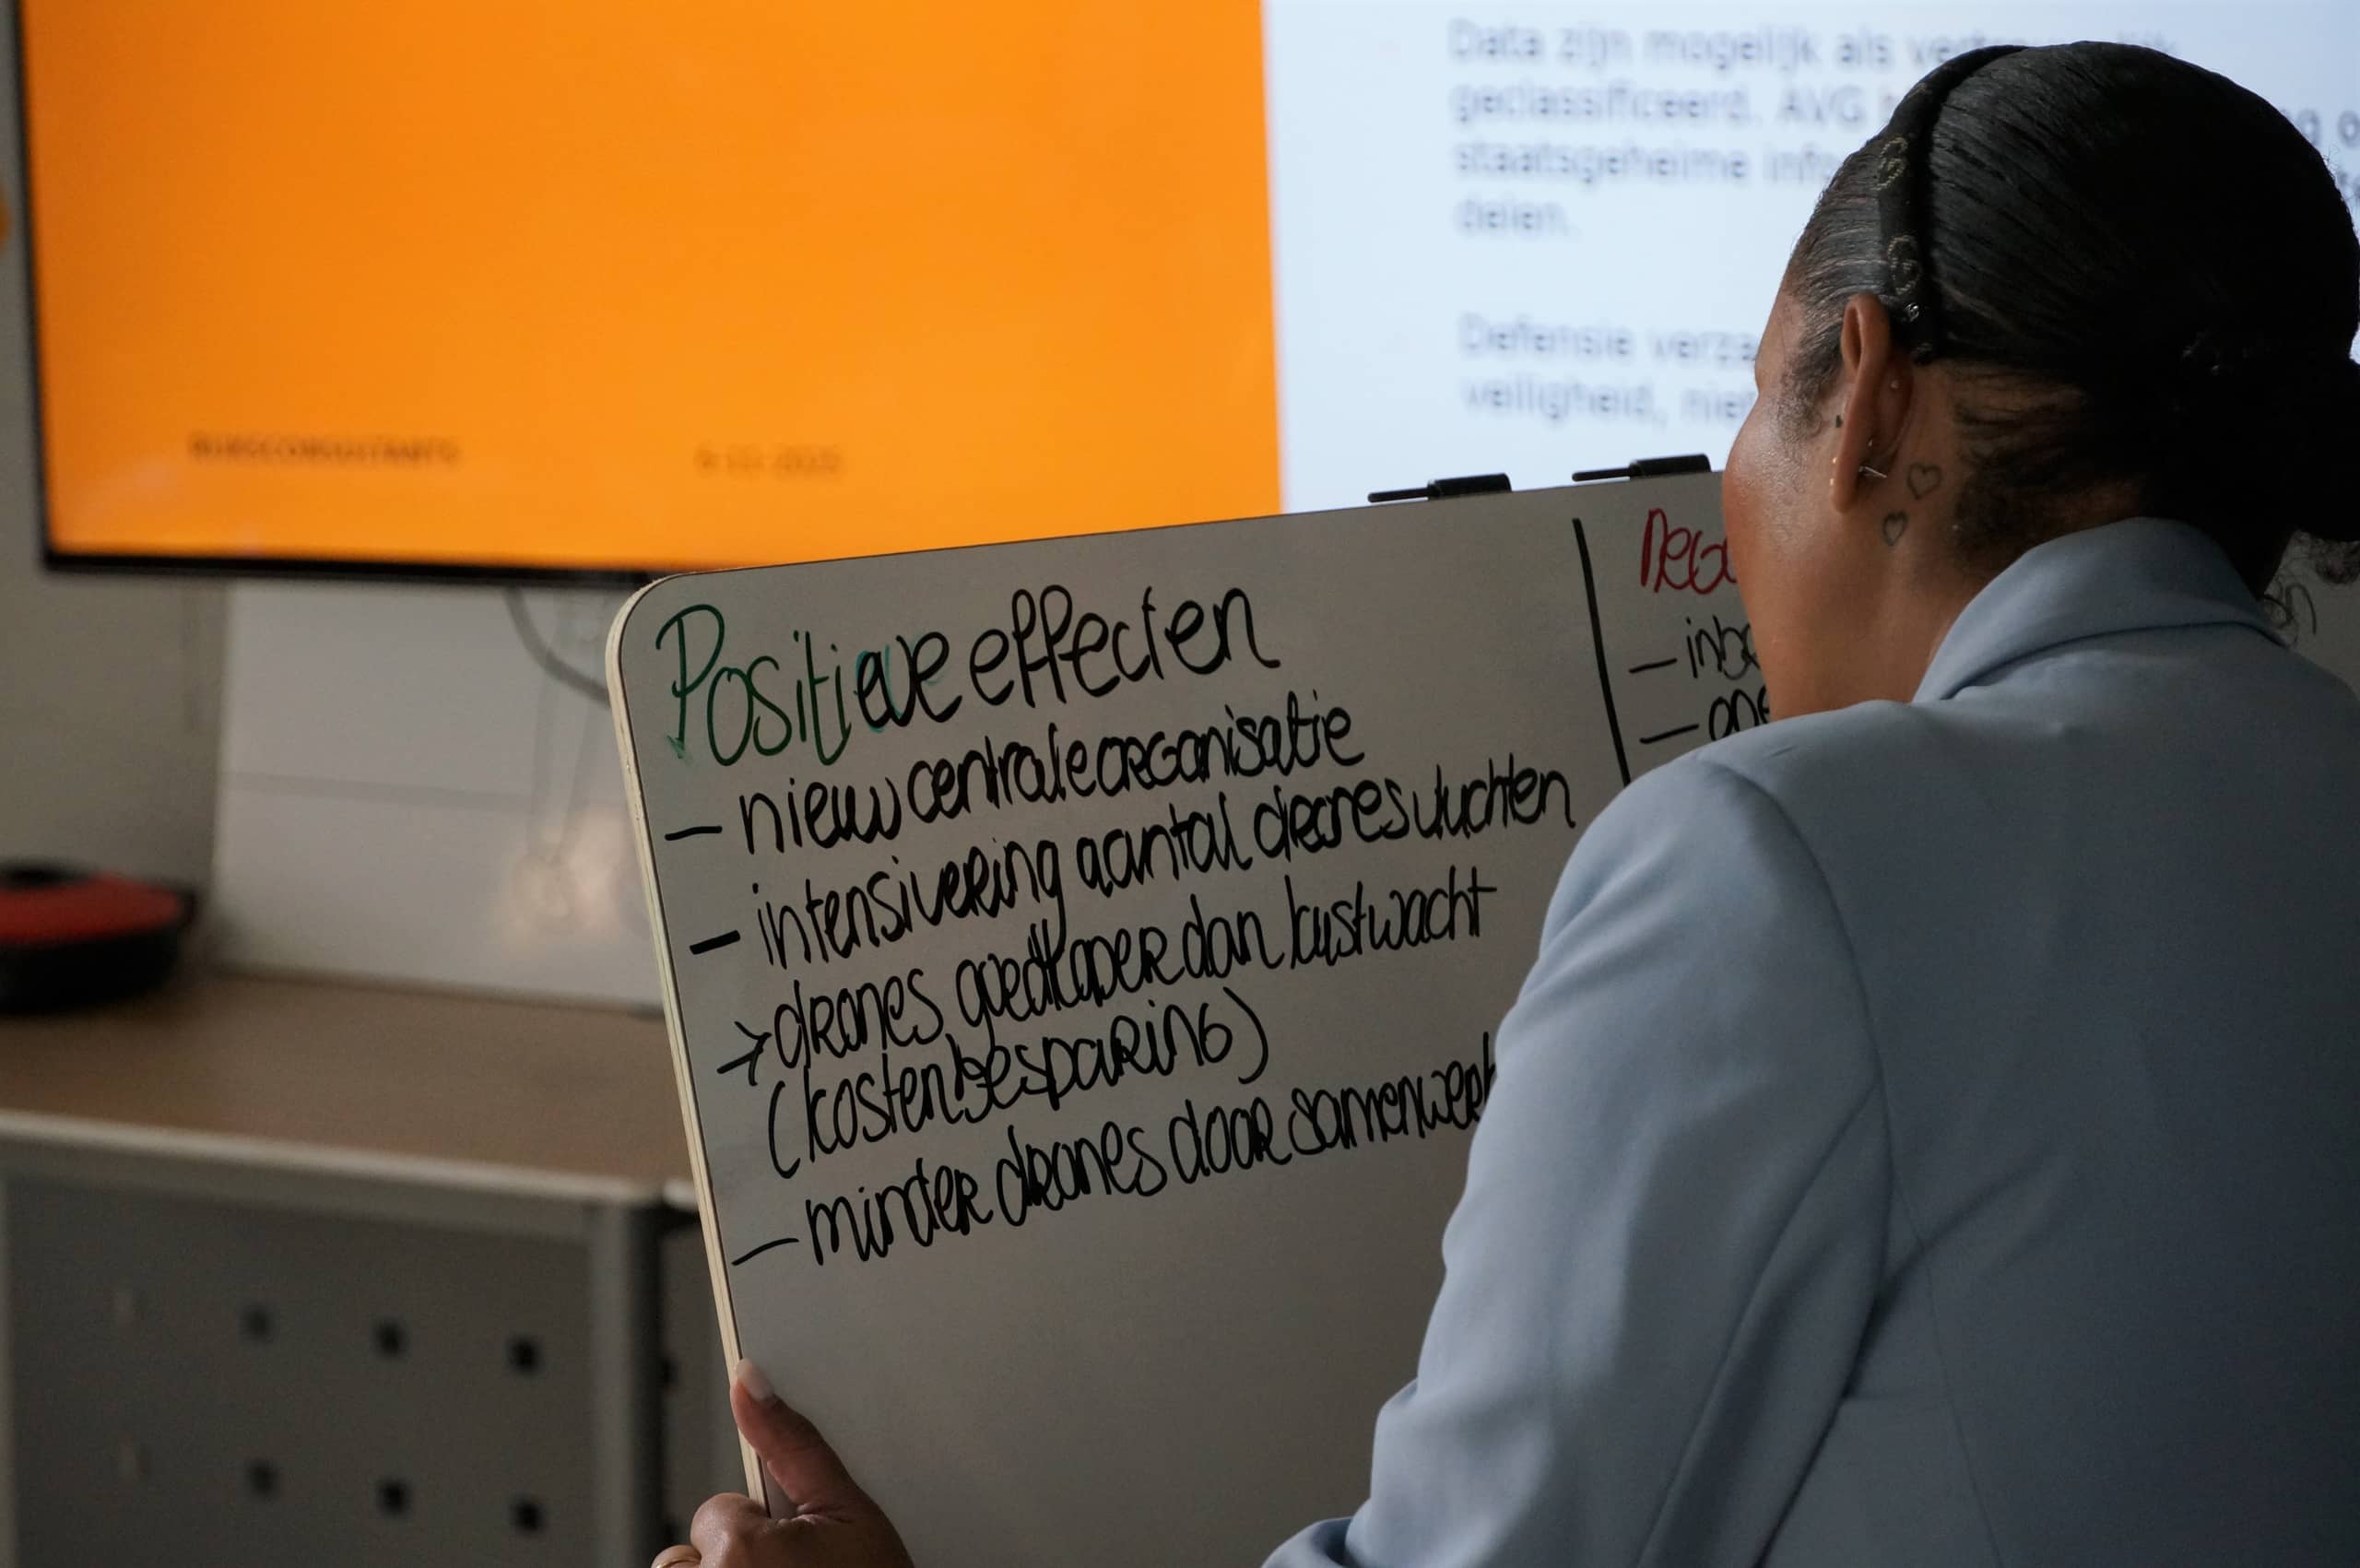 Data zijn mogelijk als
geclassificeerd. AVG
staatsgeheime
delen.
Defensie
veiligheid,
RIJKSCONSULTANTS
Positieve effecten
— nieuw centrale organisatie
— intensivering aantal drones vluchten
→ drones goedkoper dan kustwacht
(kostenbesparing)
— minder drones door samenwerk